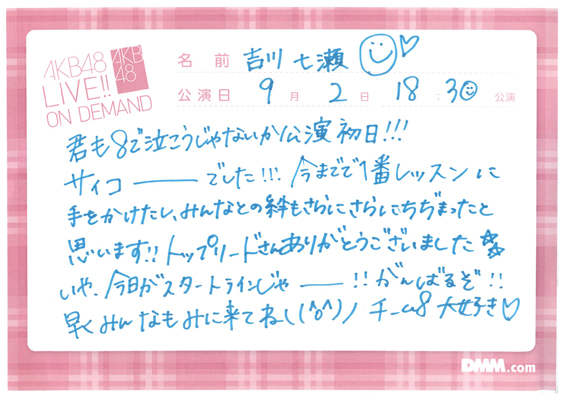 AKB48
LIVE!!
ON DEMAND
AKB
48
名前 吉川七瀬
公演日 9月2日 18:30公演
君も8で泣こうじゃないか公演初日!!!
サイコーーーでした!!! 今までで1番レッスンに
手をかけたし、みんなとの絆もさらにさらにちぢまったと
思います!! トップリードさんありがとうございました☆
いや、今日がスタートラインじゃーー!! がんばるぞ!!
早くみんなもみに来てねし(^o^)ノ チーム8 大好き♡
DMM.com